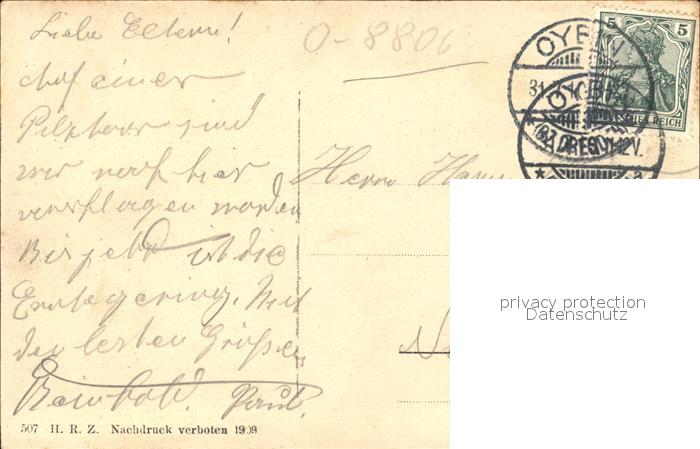 Liebe Eltern!
O-8806
Auf einer
Pilztour sind
wir nach hier
verschlagen worden
Bis jetzt ist die
Ernte gering. Mit
den besten Grüßen
Reinhold. Paul.
Herrn
OYBIN
31.
OYBIN
12V.
5 5
DEUTSCHES REICH
privacy protection
Datenschutz
507 H. R. Z. Nachdruck verboten 1909